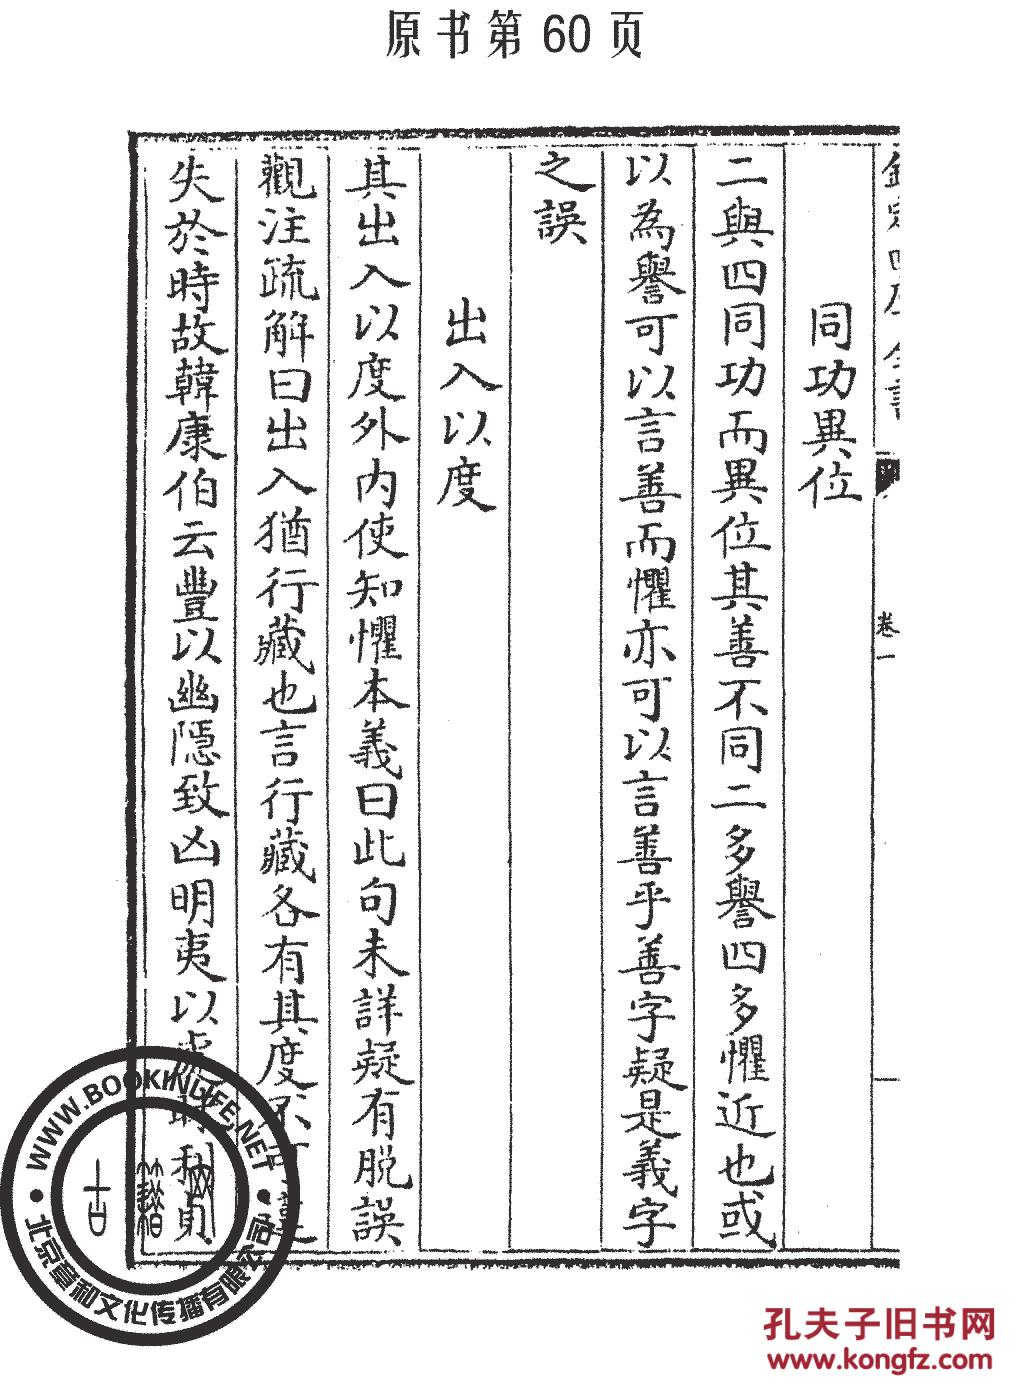 原书第 60 页
卷一
同功異位
二與四同功而異位其善不同二多譽四多懼近也或
以為譽可以言善而懼亦可以言善乎善字疑是義字
之誤
出入以度
其出入以度外内使知懼本義曰此句未詳疑有脱誤
觀注疏解曰出入猶行藏也言行藏各有其度不
失於時故韓康伯云豐以幽隱致凶明夷以處利貞
WWW.BOOKINLIFE.NET
古籍網
北京章和文化传播有限公司
孔夫子旧书网
www.kongfz.com